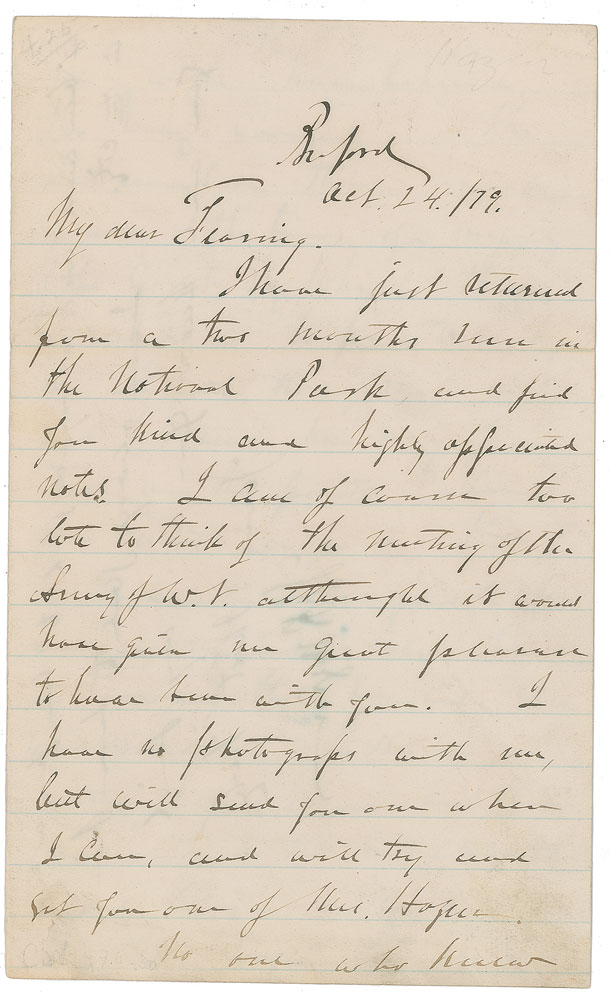 Hazen
Buford
Oct. 24./79.
My dear Fearing.
I have just returned
from a two months run in
the National Park, and find
your kind and highly appreciated
notes. I am of course too
late to think of the meeting of the
Army of W.V. although it would
have given me great pleasure
to have been with you. I
have no photographs with me,
but will send you one when
I can, and will try and
get you one of Mrs. Hazen.
No one who knew